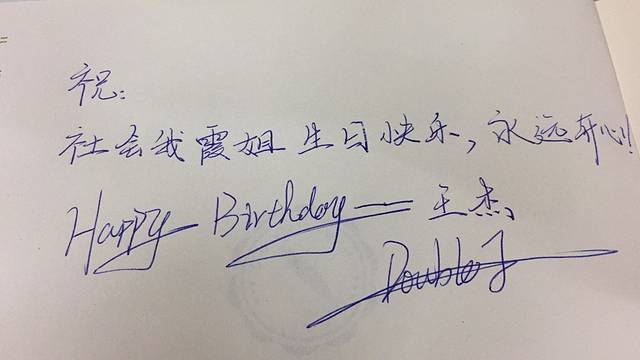 祝:
社会我霞姐生日快乐,永远开心!!
Happy Birthday — 王杰
Double J